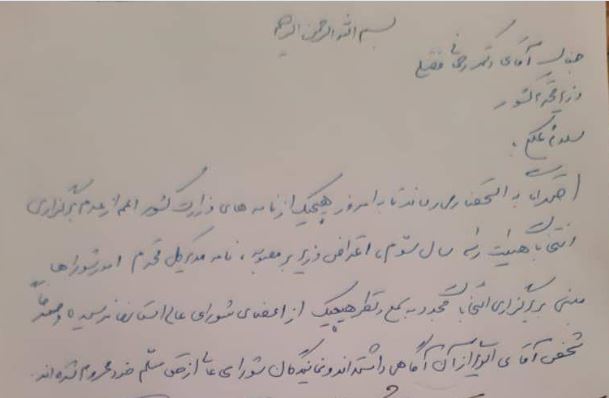 بسم الله الرحمن الرحیم
جناب آقای دکتر رحمانی فضلی
وزیر محترم کشور
سلام علیکم،
احتراماً به استحضار می رساند تا به امروز هیچیک از نامه های وزارت کشور اعم از عدم برگزاری
انتخابات هیئت رئیسه سال سوم، اعتراض وزیر بر مصوبه، نامه مدیرکل محترم امور شوراها
مبنی بر برگزاری انتخابات مجدد به سمع و نظر هیچیک از اعضای شورای عالی استانها نرسیده و صرفاً
شخص آقای از آن آگاهی داشته اند و نمایندگان شورای عالی از حق مسلم خود محروم شده اند.